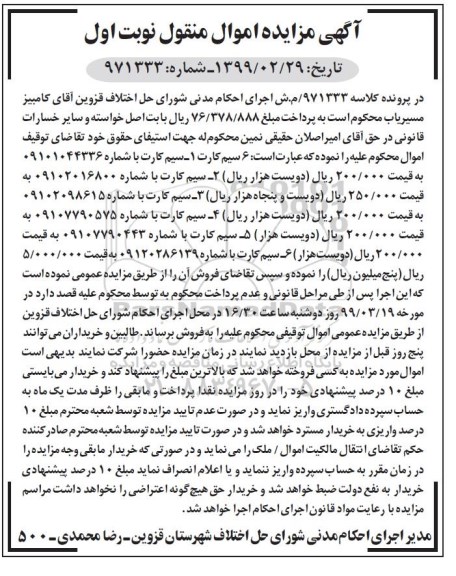 آگهی مزایده اموال منقول نوبت اول
تاریخ: ۱۳۹۹/۰۲/۲۹ـ شماره: ۹۷۱۳۳۳
در پرونده کلاسه ۹۷۱۳۳۳/م.ش اجرای احکام مدنی شورای حل اختلاف قزوین آقای کامبیز
مسیریاب محکوم است به پرداخت مبلغ ۷۶/۳۷۸/۸۸۸ ریال بابت اصل خواسته و سایر خسارات
قانونی در حق آقای امیراصلان حقیقی نمین محکوم‌له جهت استیفای حقوق خود تقاضای توقیف
اموال محکوم علیه را نموده که عبارت است: ۶ سیم کارت ۱ـ سیم کارت با شماره ۰۹۱۰۱۰۴۴۳۳۶
به قیمت ۲۰۰/۰۰۰ ریال (دویست هزار ریال) ۲ـ سیم کارت با شماره ۰۹۱۰۲۰۱۶۸۰۰ به
قیمت ۲۵۰/۰۰۰ ریال (دویست و پنجاه هزار ریال) ۳ـ سیم کارت با شماره ۰۹۱۰۲۰۹۸۶۱۵
به قیمت ۲۰۰/۰۰۰ ریال (دویست هزار ریال) ۴ـ سیم کارت با شماره ۰۹۱۰۷۷۹۰۵۷۵ به
قیمت ۲۰۰/۰۰۰ ریال (دویست هزار) ۵ـ سیم کارت با شماره ۰۹۱۰۷۷۹۰۴۴۳ به قیمت
۲۰۰/۰۰۰ ریال (دویست هزار) ۶ـ سیم کارت با شماره ۰۹۱۲۰۲۸۶۱۳۹ به قیمت ۵/۰۰۰/۰۰۰
ریال (پنج میلیون ریال) را نموده و سپس تقاضای فروش آن را از طریق مزایده عمومی نموده است
که این اجرا پس از طی مراحل قانونی و عدم پرداخت محکوم به توسط محکوم علیه قصد دارد در
مورخه ۹۹/۰۳/۱۹ روز دوشنبه ساعت ۱۶/۳۰ در محل اجرای احکام شورای حل اختلاف قزوین
از طریق مزایده عمومی اموال توقیفی محکوم علیه را به فروش برساند. طالبین و خریداران می‌توانند
پنج روز قبل از مزایده از محل بازدید نمایند در زمان مزایده حضورا شرکت نمایند بدیهی است
اموال مورد مزایده به کسی فروخته خواهد شد که بالاترین مبلغ را پیشنهاد کند و خریدار می‌بایستی
مبلغ ۱۰ درصد پیشنهادی خود را در روز مزایده نقدا پرداخت و مابقی را ظرف مدت یک ماه به
حساب سپرده دادگستری واریز نماید و در صورت عدم تایید مزایده توسط شعبه محترم مبلغ ۱۰
درصد واریزی به خریدار مسترد خواهد شد و در صورت تایید مزایده توسط شعبه محترم صادر کننده
حکم تقاضای انتقال مالکیت اموال / ملک را می‌نماید و در صورتی که خریدار مابقی وجه مزایده را
در زمان مقرر به حساب سپرده واریز ننماید و یا اعلام انصراف نماید مبلغ ۱۰ درصد پیشنهادی
خریدار به نفع دولت ضبط خواهد شد و خریدار حق هیچ‌گونه اعتراضی را نخواهد داشت مراسم
مزایده با رعایت مواد قانون اجرای احکام اجرا خواهد شد.
مدیر اجرای احکام مدنی شورای حل اختلاف شهرستان قزوین ـ رضا محمدی ـ ۵۰۰